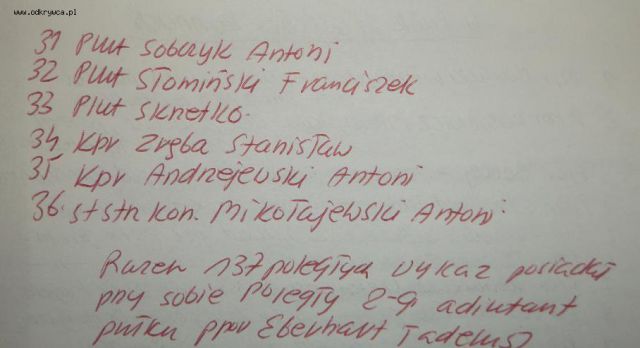 www.odkrywca.pl
31 Plut Sobczyk Antoni
32 Plut Słomiński Franciszek
33 Plut Sknetko.
34 Kpr Zręba Stanisław
35 Kpr Andrzejewski Antoni
36. st strz kon. Mikołajewski Antoni.
Razem 137 poległych wykaz posiadał
przy sobie Poległy 2-gi adiutant
pułku ppor Eberhart Tadeusz